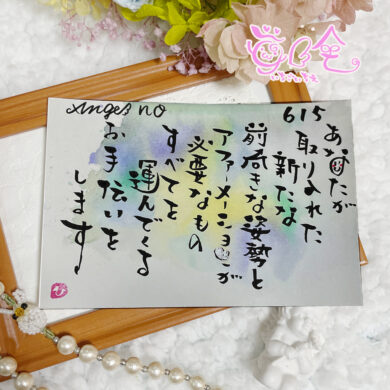 Angel no
615
あなたが
取り入れた
新たな
前向きな姿勢と
アファーメーションが
必要なもの
すべてを
運んでくる
お手伝いを
します